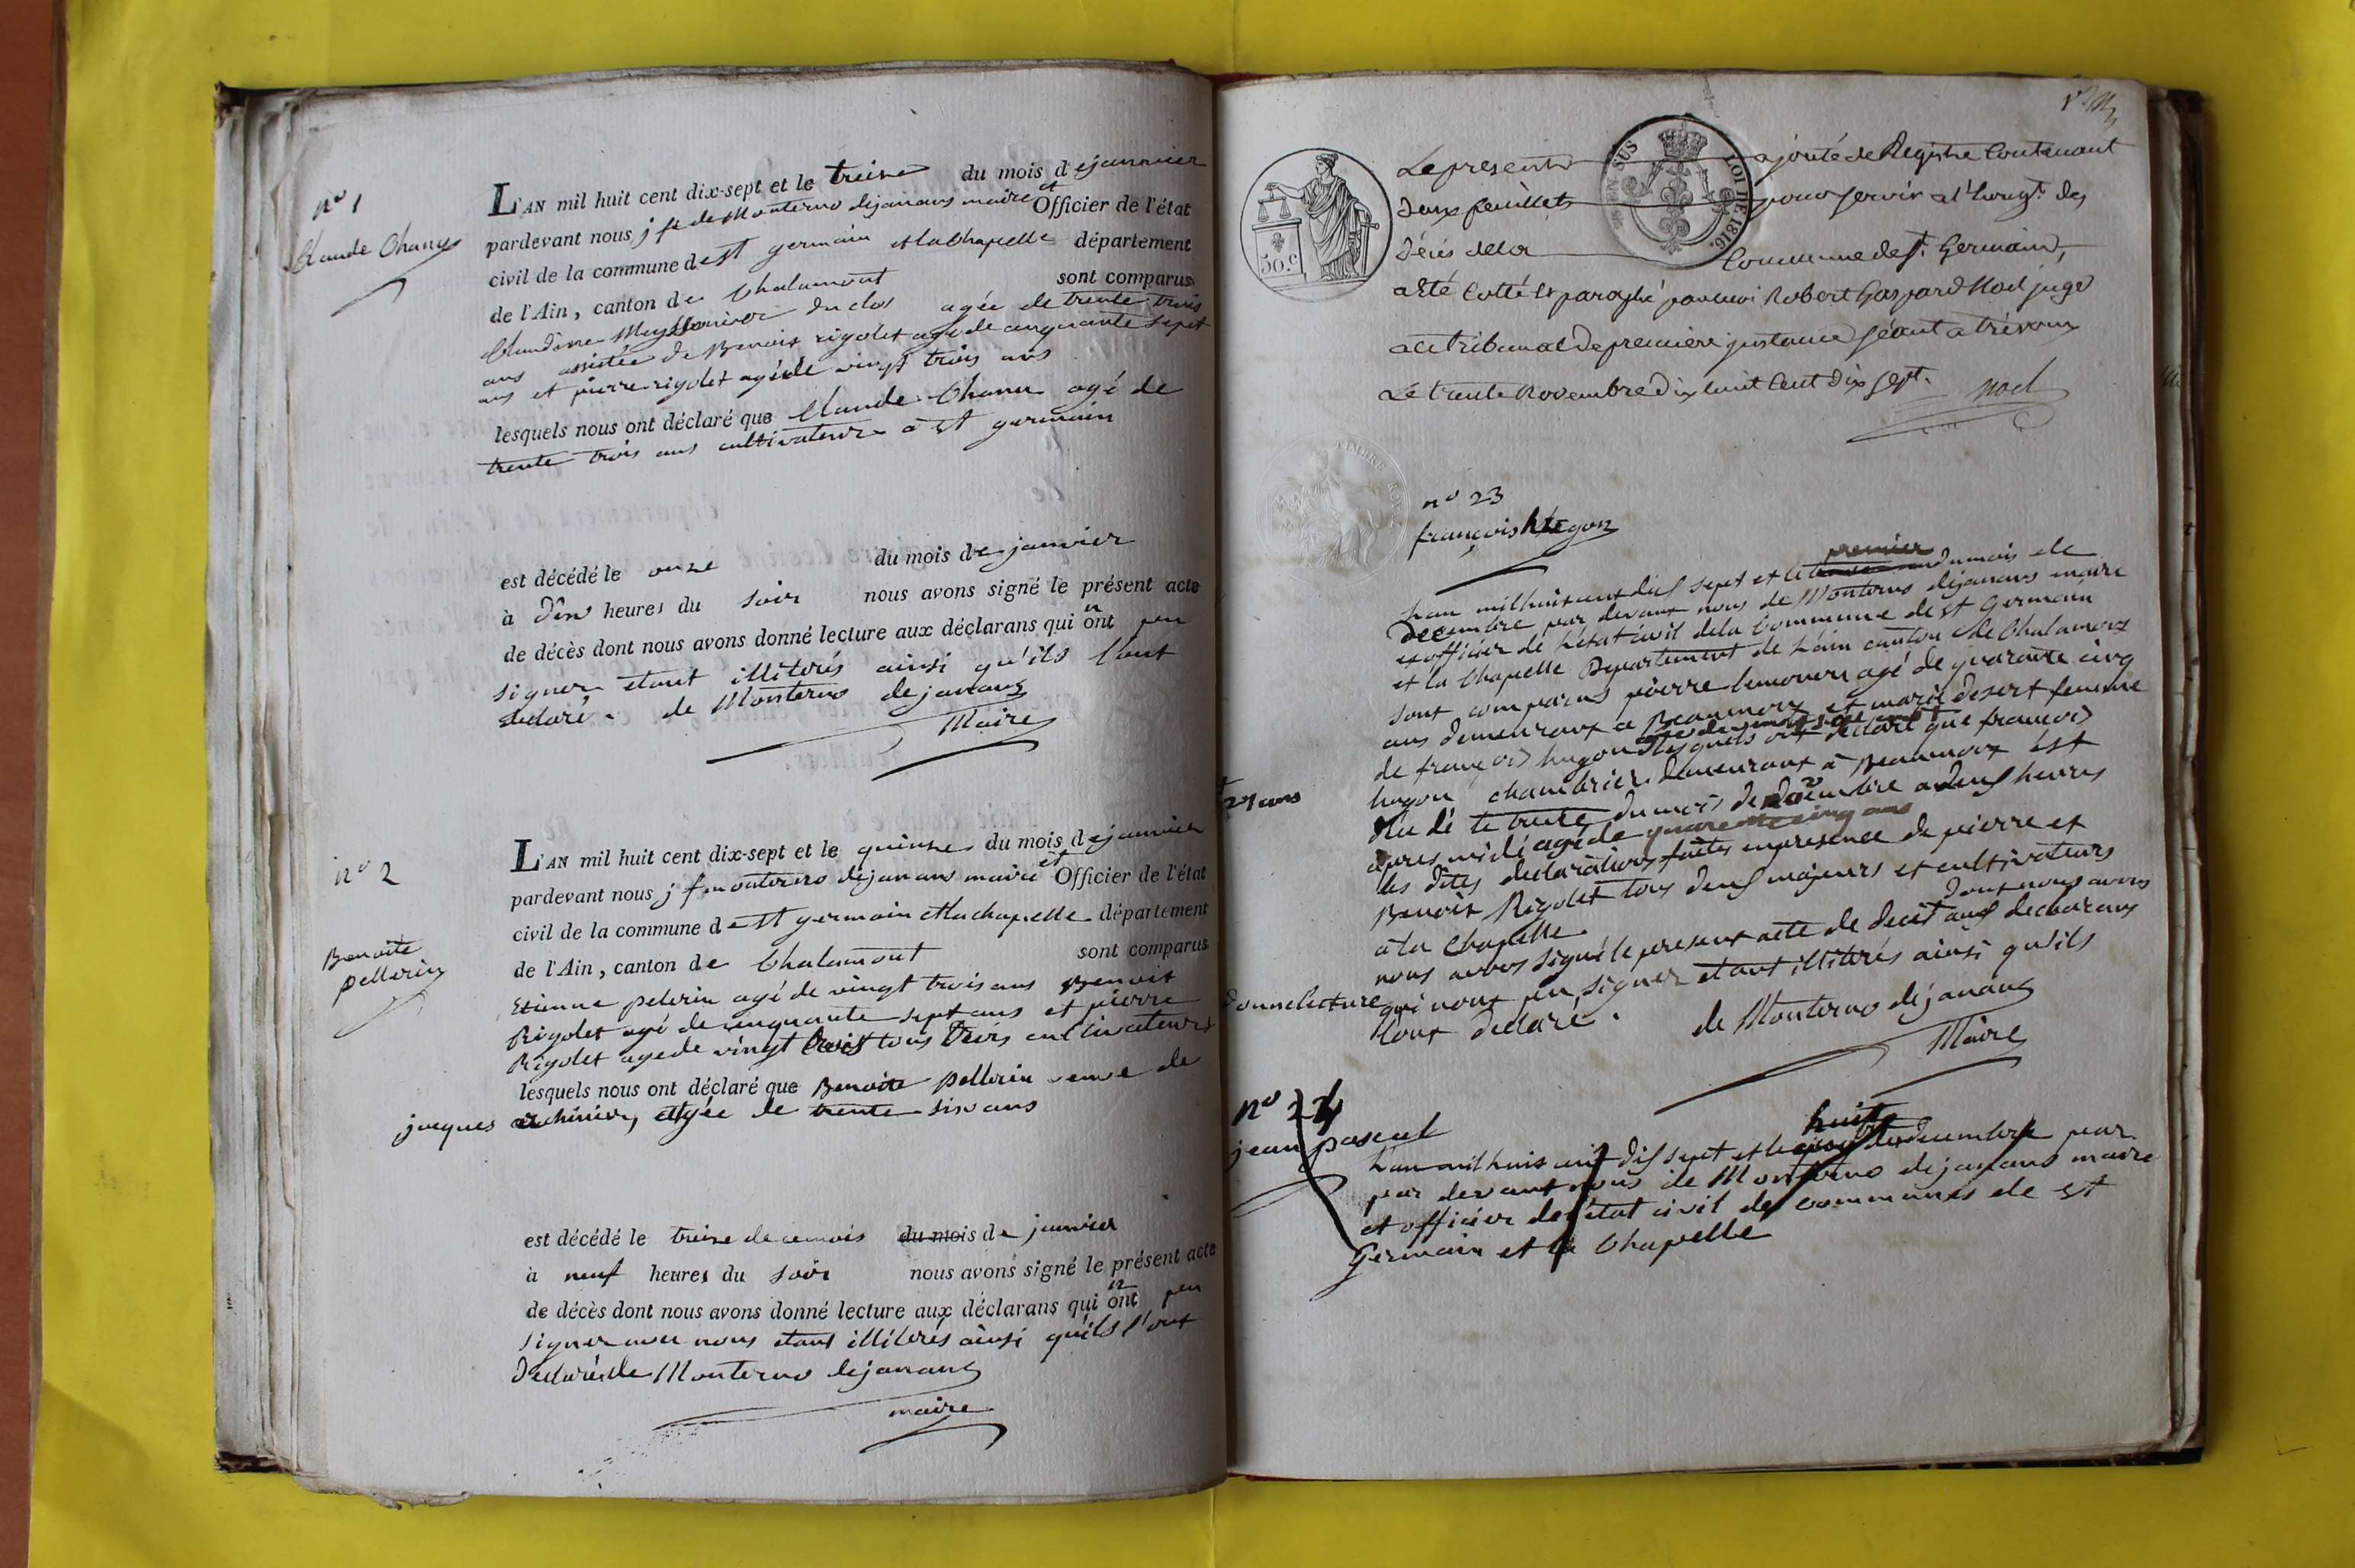 nº 1
Claude Chanu
L'AN mil huit cent dix-sept et le treize du mois de jannvier
pardevant nous j f de Monterno dejanans maire et Officier de l'état
civil de la commune de st germain et la Chapelle département
de l'Ain, canton de Chalamont sont comparus
Claudine duclos agée de trente trois
ans assistée de Benoit rigolet agé de cinquante sept
ans et pierre rigolet agé de vingt trois ans
lesquels nous ont déclaré que Claude Chanu agé de
trente trois ans cultivateur à st germain
est décédé le onze du mois de janvier
à dix heures du soir nous avons signé le présent acte
de décès dont nous avons donné lecture aux déclarans qui n ont peu
signer etant illiterés ainsi qu'ils l'ont
declaré. de Monterno dejanans
Maire
nº 2
Benoite
pellerin
L'AN mil huit cent dix-sept et le quinze du mois de janvier
pardevant nous j f monterno dejanans maire et Officier de l'état
civil de la commune de st germain et la chapelle département
de l'Ain, canton de Chalamont sont comparus
Etienne pelerin agé de vingt trois ans Benoit
Rigolet agé de cinquante sept ans et pierre
Rigolet agé de vingt trois tous trois cultivateurs
lesquels nous ont déclaré que Benoite pellerin veuve de
jacques agée de trente six ans
est décédé le treize de ce mois du mois de janvier
à neuf heures du soir nous avons signé le présent acte
de décès dont nous avons donné lecture aux déclarans qui n ont peu
signer avec nous etant illiterés ainsi qu'ils l'ont
declaré de Monterno dejanans
maire
EN SUS
LOI DE 1816.
50.c
TIMBRE ROYAL
Le present ajouté de Registre Contenant
deux feuillets pour servir a l'Enregt. des
Décés de la Commune de St. Germain,
a Eté Cotté et paraphé par moi Robert Gaspard Noel juge
au tribunal de premiere instance séant a trévoux
Le trente Novembre dix huit Cent dix sept.
noel
nº 23
françois hugon
premier
L'an mil huit cent dix sept et le du mois de
decembre par devant nous de Monterno dejanans maire
et officier de l'etat civil de la Commune de st Germain
et la Chapelle Departement de l'ain canton de Chalamont
sont comparus pierre agé de quarante cinq
ans demeurant a Beaumont et marie desert femme
de françois hugon lesquels ont declaré que françois
hugon chambrier demeurant à Beaumont est
27 ans
le trente du mois de novembre a deux heures
apres midi agé de quarente cinq ans
les dites declarations faites en presence de pierre et
Benoit Rigolet tous deux majeurs et cultivateurs
à la Chapelle.
dont nous avons
nous avons signé le present acte de decés aux declarans
donné lecture qui nont peu signer etant illiterés ainsi qu'ils
l'ont declaré. de Monterno dejanans
Maire
nº 24
jean pascal
huit
L'an mil huit cent dix sept et le cinq de decembre par
par devant nous de Monterno dejanans maire
et officier de l'état civil des communes de st
Germain et la Chapelle